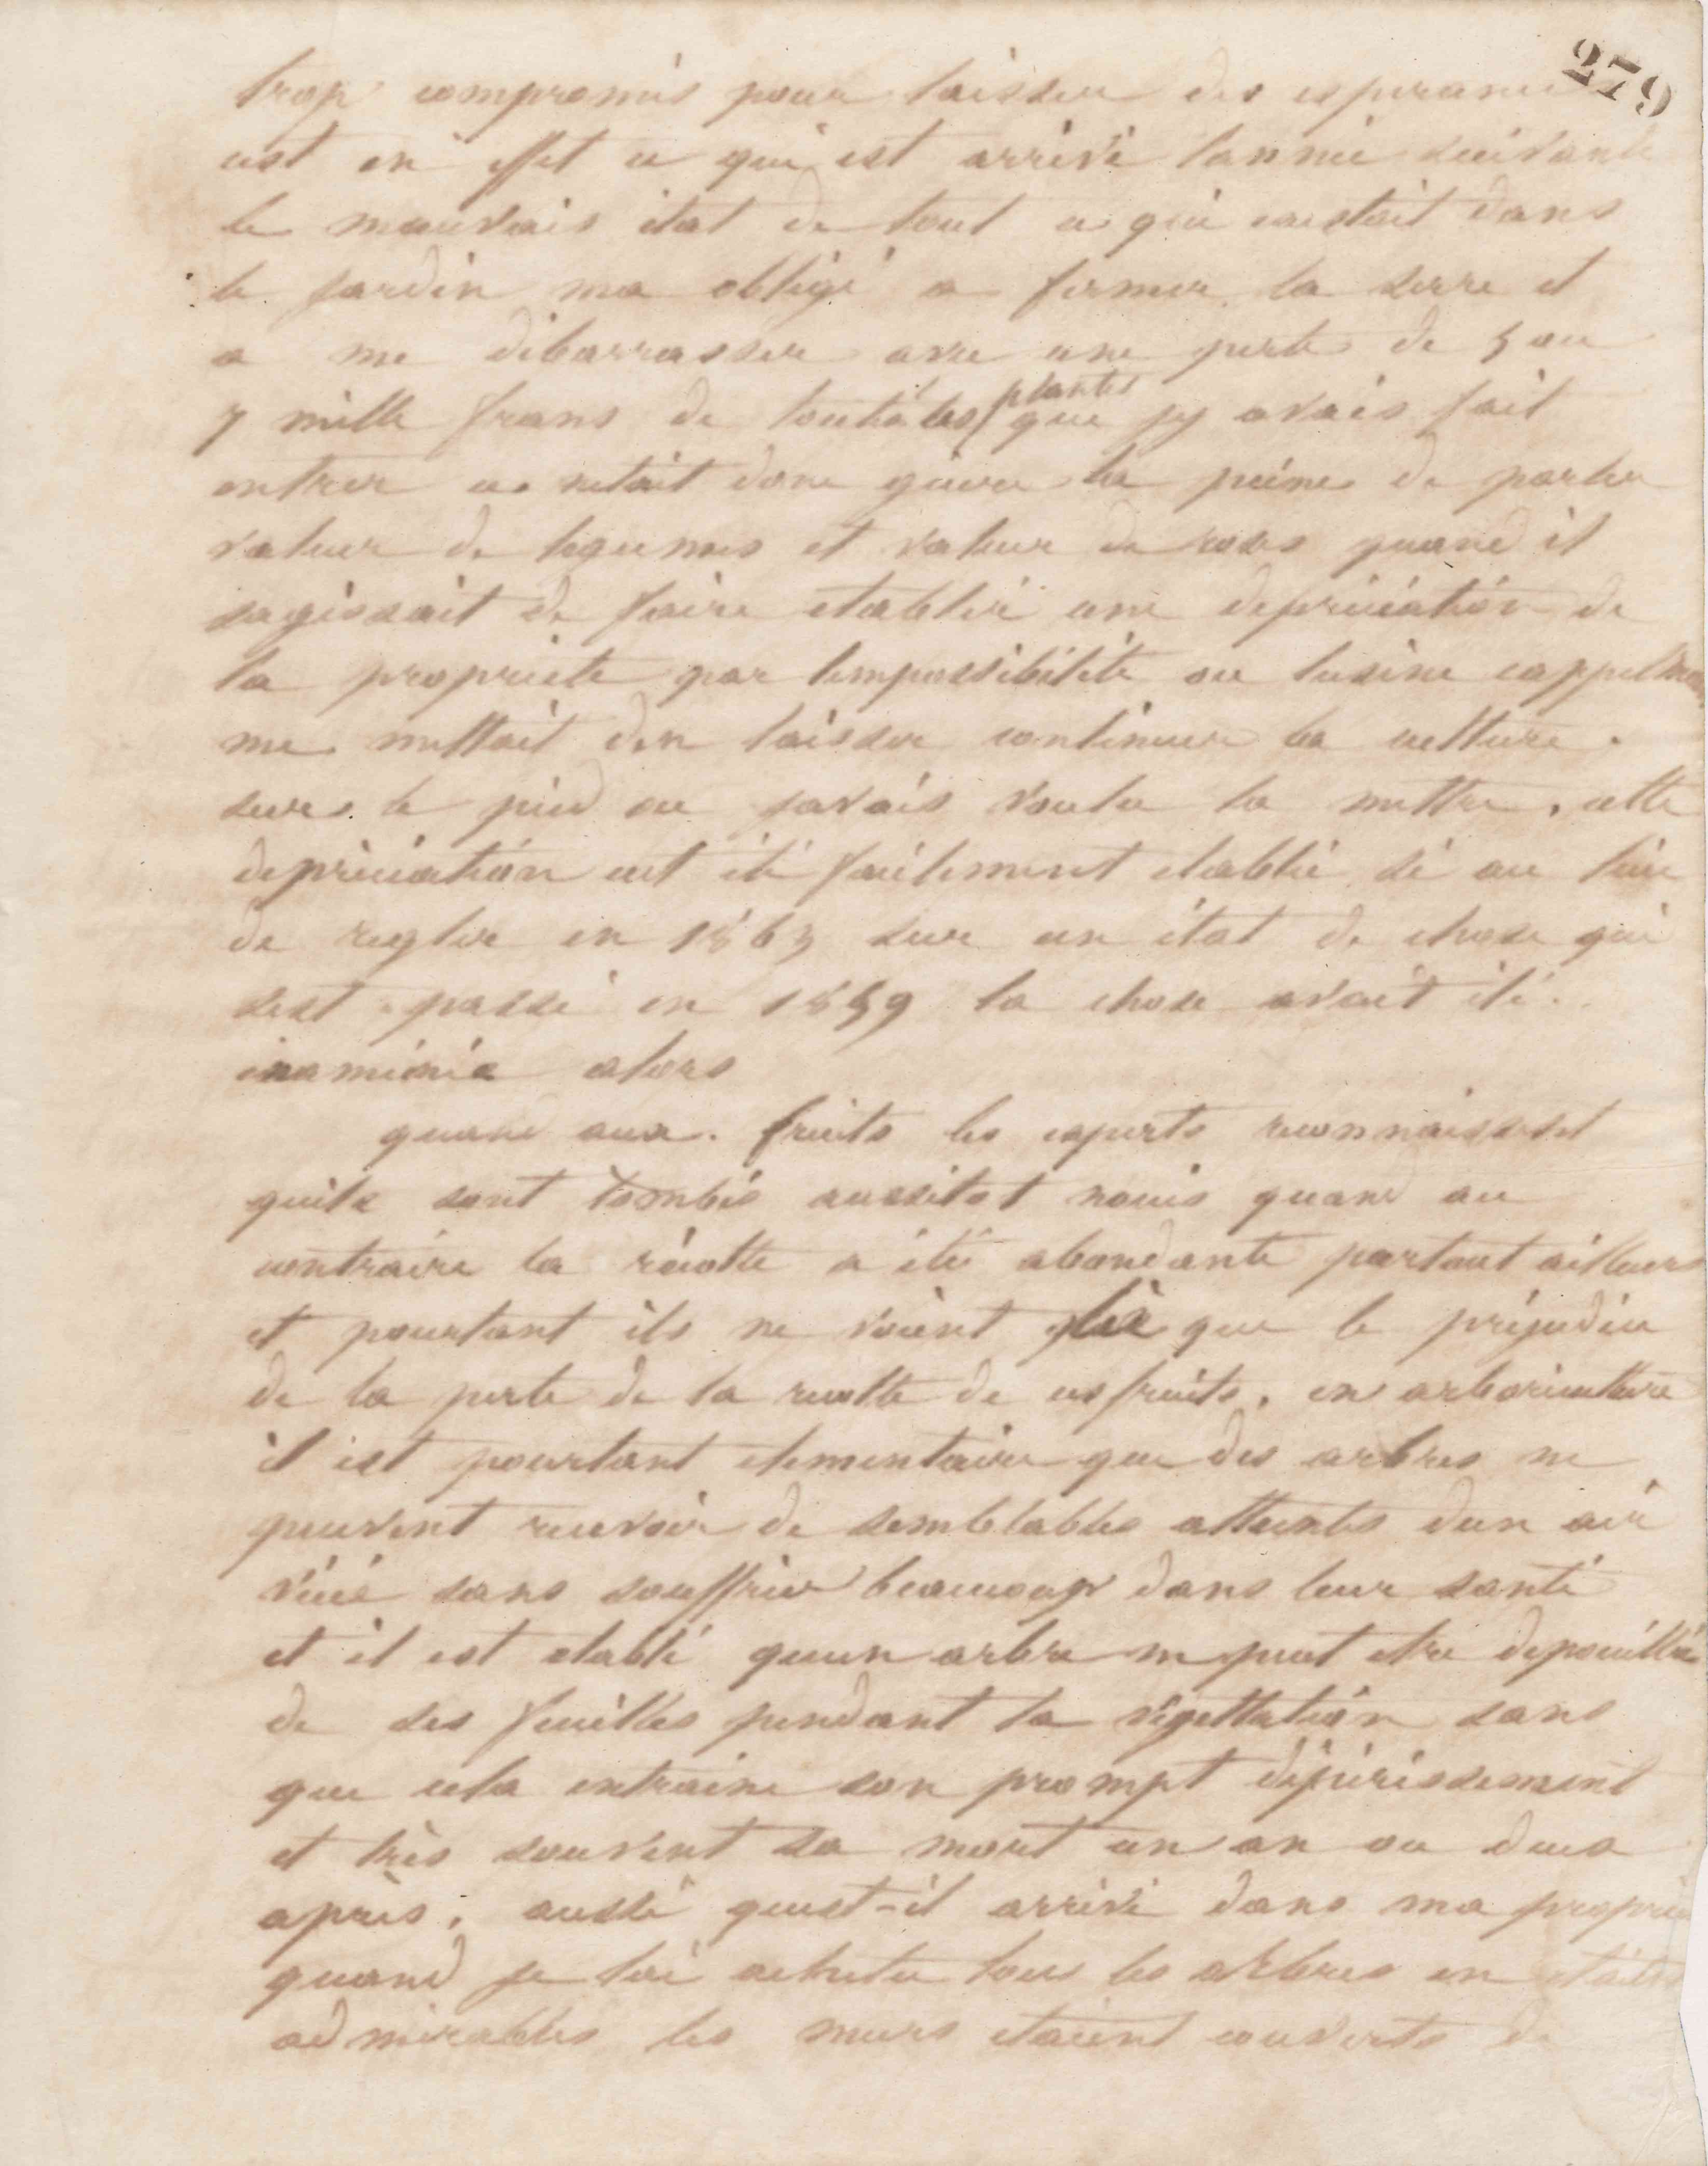 279
trop compromis pour laisser des esperances
cest en effet ce qui est arrivé lannée suivante
le mauvais état de tout ce qui existait dans
le jardin ma obligé a fermer la serre et
a me débarrasser avec une perte de 5 ou
7 mille frans de toutes les plantes que jy avais fait
entrer ce netait donc guere la peine de parler
valeur de legumes et valeur de roses quand il
sagissait de faire etablir une depréciation de
la propriete par limpossibilité ou lusine cappelmen
me mettait den laisser continuer la culture.
sur le pied ou javais voulu la mettre, cette
depréciation eut été facilement etablie si au lieu
de regler en 1863 sur un état de chose qui
sest passé en 1859 la chose avait été
examinée alors
quand aux fruits les experts reconnaissent
quils sont tombés aussitot nouis quand au
contraire la récolte a été abondante partout ailleurs
et pourtant ils ne voient là que le préjudice
de la perte de la recolte de ces fruits, en arboriculture
il est pourtant elementaire que des arbres ne
peuvent recevoir de semblables atteintes dun air
vicié sans souffrir beaucoup dans leur santé
et il est etabli quun arbre ne peut etre depouillé
de ses feuilles pendant la végettation sans
que cela entraine son prompt dépérissement
et très souvent sa mort un an ou deux
après, aussi quest-il arrivé dans ma proprié
quand je lai achetée tous les arbres en étaient
admirables les murs etaient couverts de